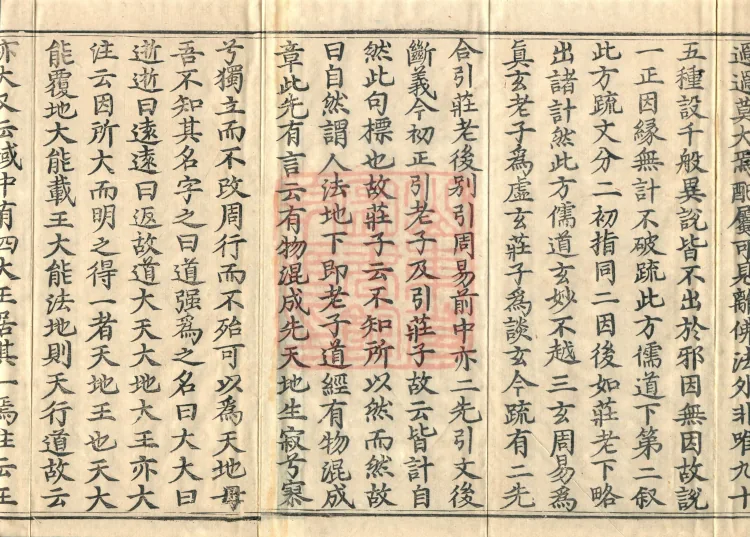 過過莫大焉酷屬可見離佛法外非唯九十
五種設千般異說皆不出於邪因無因故說
一正因緣無計不破疏此方儒道下第二叙
此方疏文分二初指同二因後如莊老下略
出諸計然此方儒道玄妙不越三玄周易為
真玄老子為虛玄莊子為談玄今疏有二先
合引莊老後别引周易前中亦二先引文後
斷義今初正引老子及引莊子故云皆計自
然此句標也故莊子云不知所以然而然故
曰自然謂人法地下即老子道經有物混成
章此先有言云有物混成先天地生寂兮寥
兮獨立而不改周行而不殆可以為天地母
吾不知其名字之曰道强為之名曰大大曰
逝逝曰遠遠曰返故道大天大地大王亦大
注云因所大而明之得一者天地王也天大
能覆地大能載王大能法地則天行道故云
亦大又云域中有四大王居其一焉注云王